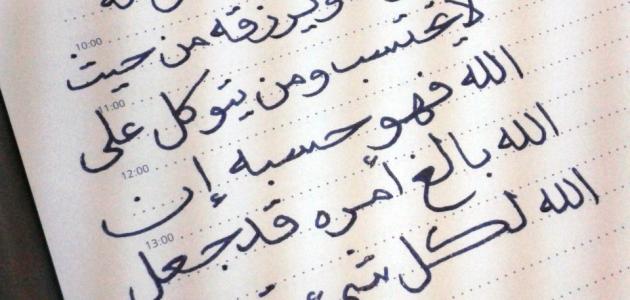 10:00
ويرزقه من حيث
لا يحتسب ومن يتوكل على
11:00
الله فهو حسبه إن
12:00
الله بالغ أمره قد جعل
13:00
الله لكل شيء